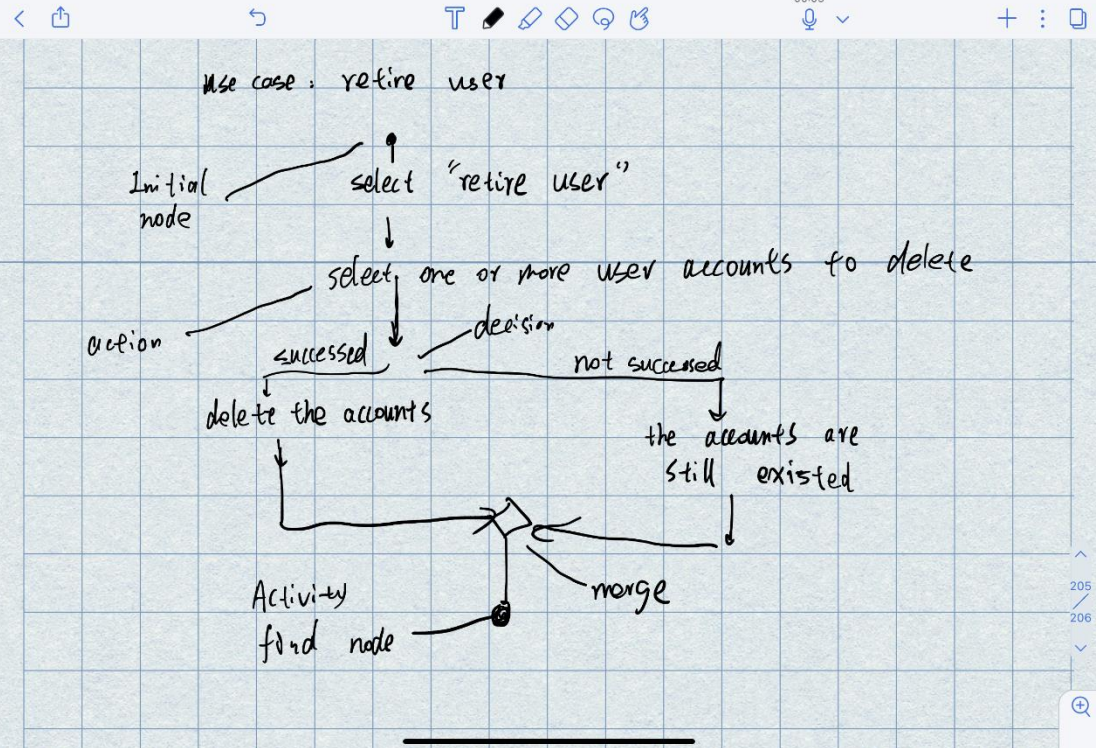 use case: retire user
Initial
node
select "retire user"
select one or more user accounts to delete
action
decision
successed
not successed
delete the accounts
the accounts are
still existed
merge
Activity
find node
205
206